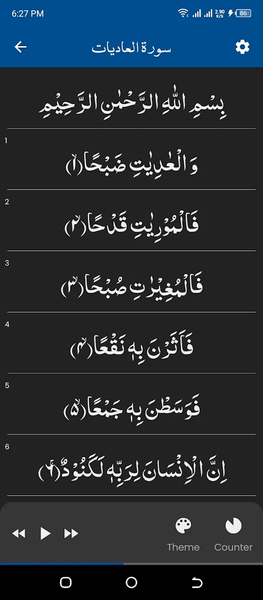 6:27 PM 2.90 K/s 86
سورة العاديات
بِسْمِ اللهِ الرَّحْمٰنِ الرَّحِيْمِ
1
وَالْعٰدِيٰتِ ضَبْحًا(۱)
2
فَالْمُوْرِيٰتِ قَدْحًا(۲)
3
فَالْمُغِيْرٰتِ صُبْحًا(۳)
4
فَاَثَرْنَ بِهٖ نَقْعًا(۴)
5
فَوَسَطْنَ بِهٖ جَمْعًا(۵)
6
اِنَّ الْاِنْسَانَ لِرَبِّهٖ لَكَنُوْدٌ(۶)
Theme Counter